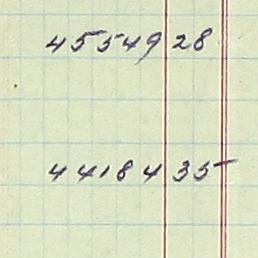 45549 28
44184 35